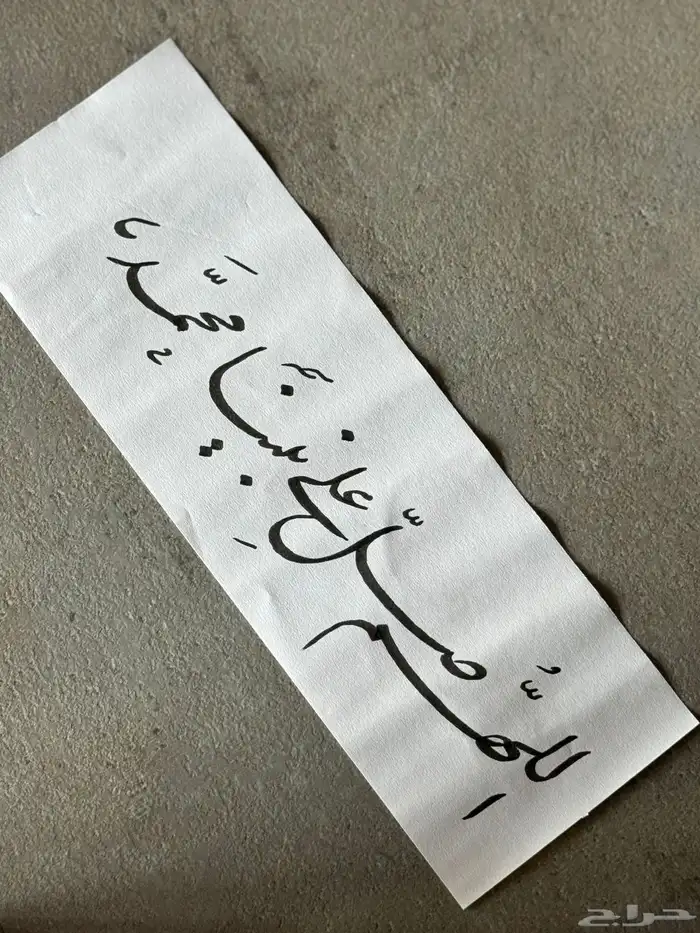 اللّهُم صلّ علي نبينا محمّد
حراج